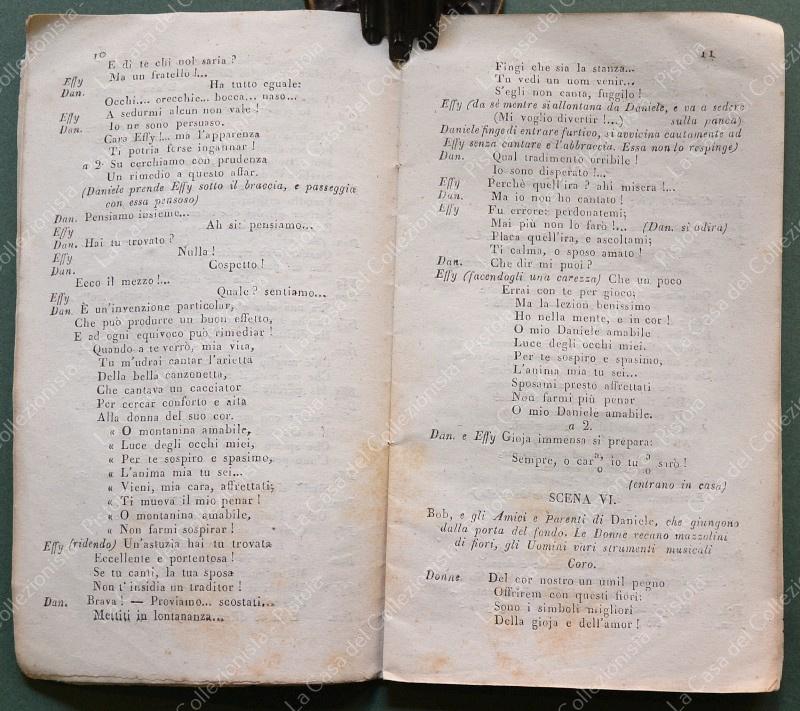 10
E di te chi nol saria?
Effy Ma un fratello!...
Dan. Ha tutto eguale:
Occhi.... orecchie... bocca... naso...
Effy A sedurmi alcun non vale!
Dan. Io ne sono persuaso.
Cara Effy!... ma l'apparenza
Ti potria forse ingannar!
a 2. Su cerchiamo con prudenza
Un rimedio a questo affar.
(Daniele prende Effy sotto il braccia, e passeggia
con essa pensoso)
Dan. Pensiamo insieme...
Effy Ah si: pensiamo...
Dan. Hai tu trovato?
Effy Nulla!
Dan. Cospetto!
Ecco il mezzo!...
Effy Quale? sentiamo...
Dan. È un'invenzione particolar,
Che può produrre un buon effetto,
E ad ogni equivoco può rimediar!
Quando a te verrò, mia vita,
Tu m'udrai cantar l'arietta
Della bella canzonetta,
Che cantava un cacciator
Per cercar conforto e aita
Alla donna del suo cor.
« O montanina amabile,
« Luce degli occhi miei,
« Per te sospiro e spasimo,
« L'anima mia tu sei...
« Vieni, mia cara, affrettati;
« Ti mueva il mio penar!
« O montanina amabile,
« Non farmi sospirar!
Effy (ridendo) Un'astuzia hai tu trovata
Eccellente e portentosa!
Se tu canti, la tua sposa
Non t'insidia un traditor!
Dan. Brava! — Proviamo... scostati...
Mettiti in lontananza...
11
Fingi che sia la stanza...
Tu vedi un uom venir...
S'egli non canta, fuggilo!
Effy (da sè mentre si allontana da Daniele, e va a sedere
(Mi voglio divertir!...) sulla panca)
Daniele finge di entrare furtivo, si avvicina cautamente ad
Effy senza cantare e l'abbraccia. Essa non lo respinge)
Dan. Qual tradimento orribile!
Io sono disperato!...
Effy Perchè quell'ira? ahi misera!...
Dan. Ma io non ho cantato!
Effy Fu errore: perdonatemi;
Mai più non lo farò!... (Dan. si adira)
Placa quell'ira, e ascoltami;
Ti calma, o sposo amato!
Dan. Che dir mi puoi?
Effy (facendogli una carezza) Che un poco
Errai con te per gioco;
Ma la lezion benissimo
Ho nella mente, e in cor!
O mio Daniele amabile
Luce degli occhi miei.
Per te sospiro e spasimo,
L'anima mia tu sei...
Sposami presto affrettati
Non farmi più penar
O mio Daniele amabile.
a 2.
Dan. e Effy Gioja immensa si prepara:
Sempre, o car a, o io tu a o sarò!
(entrano in casa)
SCENA VI.
Bob, e gli Amici e Parenti di Daniele, che giungono
dalla porta del fondo. Le Donne recano mazzolini
di fiori, gli Uomini vari strumenti musicali
Coro.
Donne. Del cor nostro un umil pegno
Offrirem con questi fiori:
Sono i simboli migliori
Della gioja e dell'amor!
La Casa del Collezionista - Pistoia